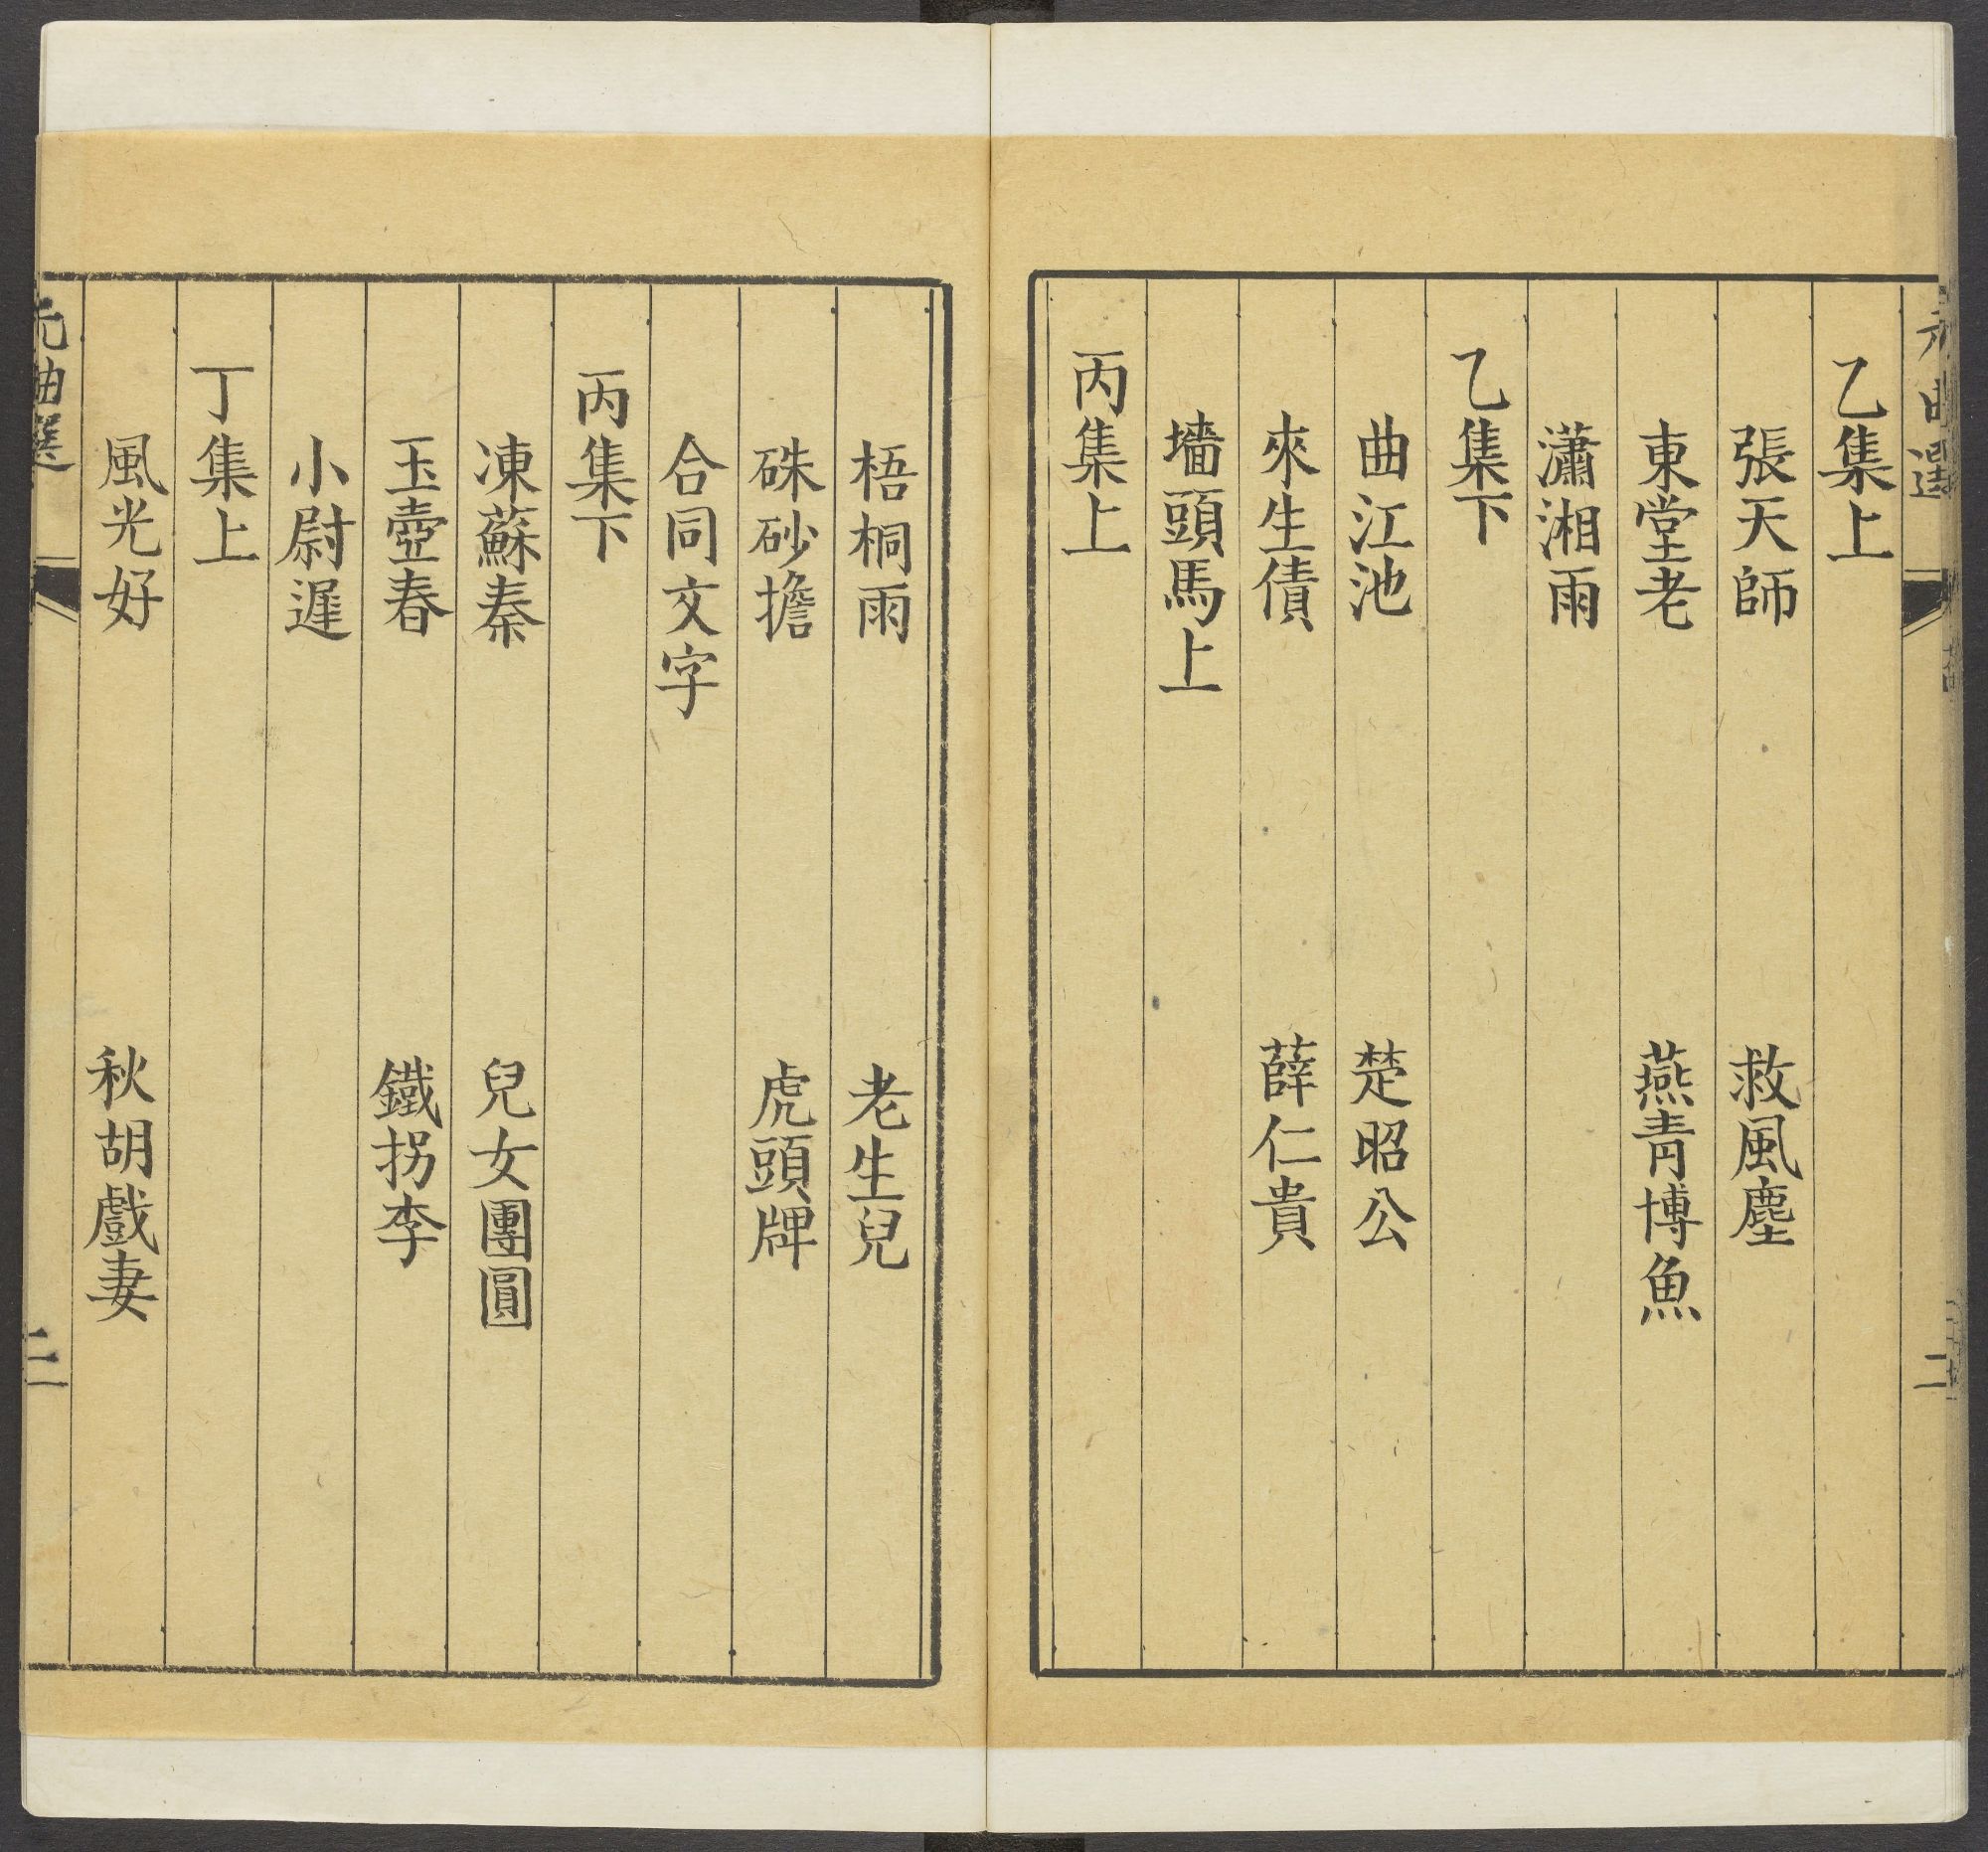 元曲選
二
乙集上
張天師 救風塵
東堂老 燕青博魚
瀟湘雨
乙集下
曲江池 楚昭公
來生債 薛仁貴
墻頭馬上
丙集上
梧桐雨 老生兒
硃砂擔 虎頭牌
合同文字
丙集下
凍蘇秦 兒女團圓
玉壺春 鐵拐李
小尉遲
丁集上
風光好 秋胡戲妻
元曲選